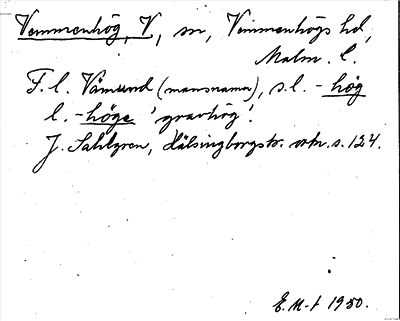 Vemmenhög, V, sn, Vemmenhögs hd,
Malm. l.
F. l. Vämund (mansnamn), s.l. -hög
l. -höge 'gravhög'.
J. Sahlgren, Hälsingborgstr. ortn. s. 124.
E. M-t 1950.